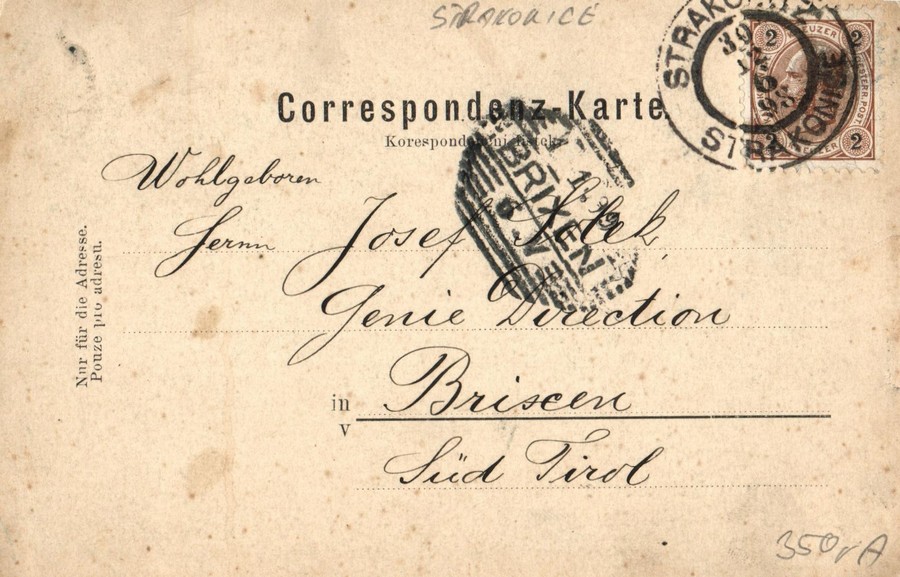 STRAKONICE
STRAKONICE
STRAKONICE
2 KREUZER 2
2 KREUZER 2
Correspondenz-Karte.
Korespondenční lístek.
BRIXEN
Wohlgeboren
Herrn Josef
Genie Direction
in Brixen
v
Süd Tirol
Nur für die Adresse.
Pouze pro adresu.
350,- A